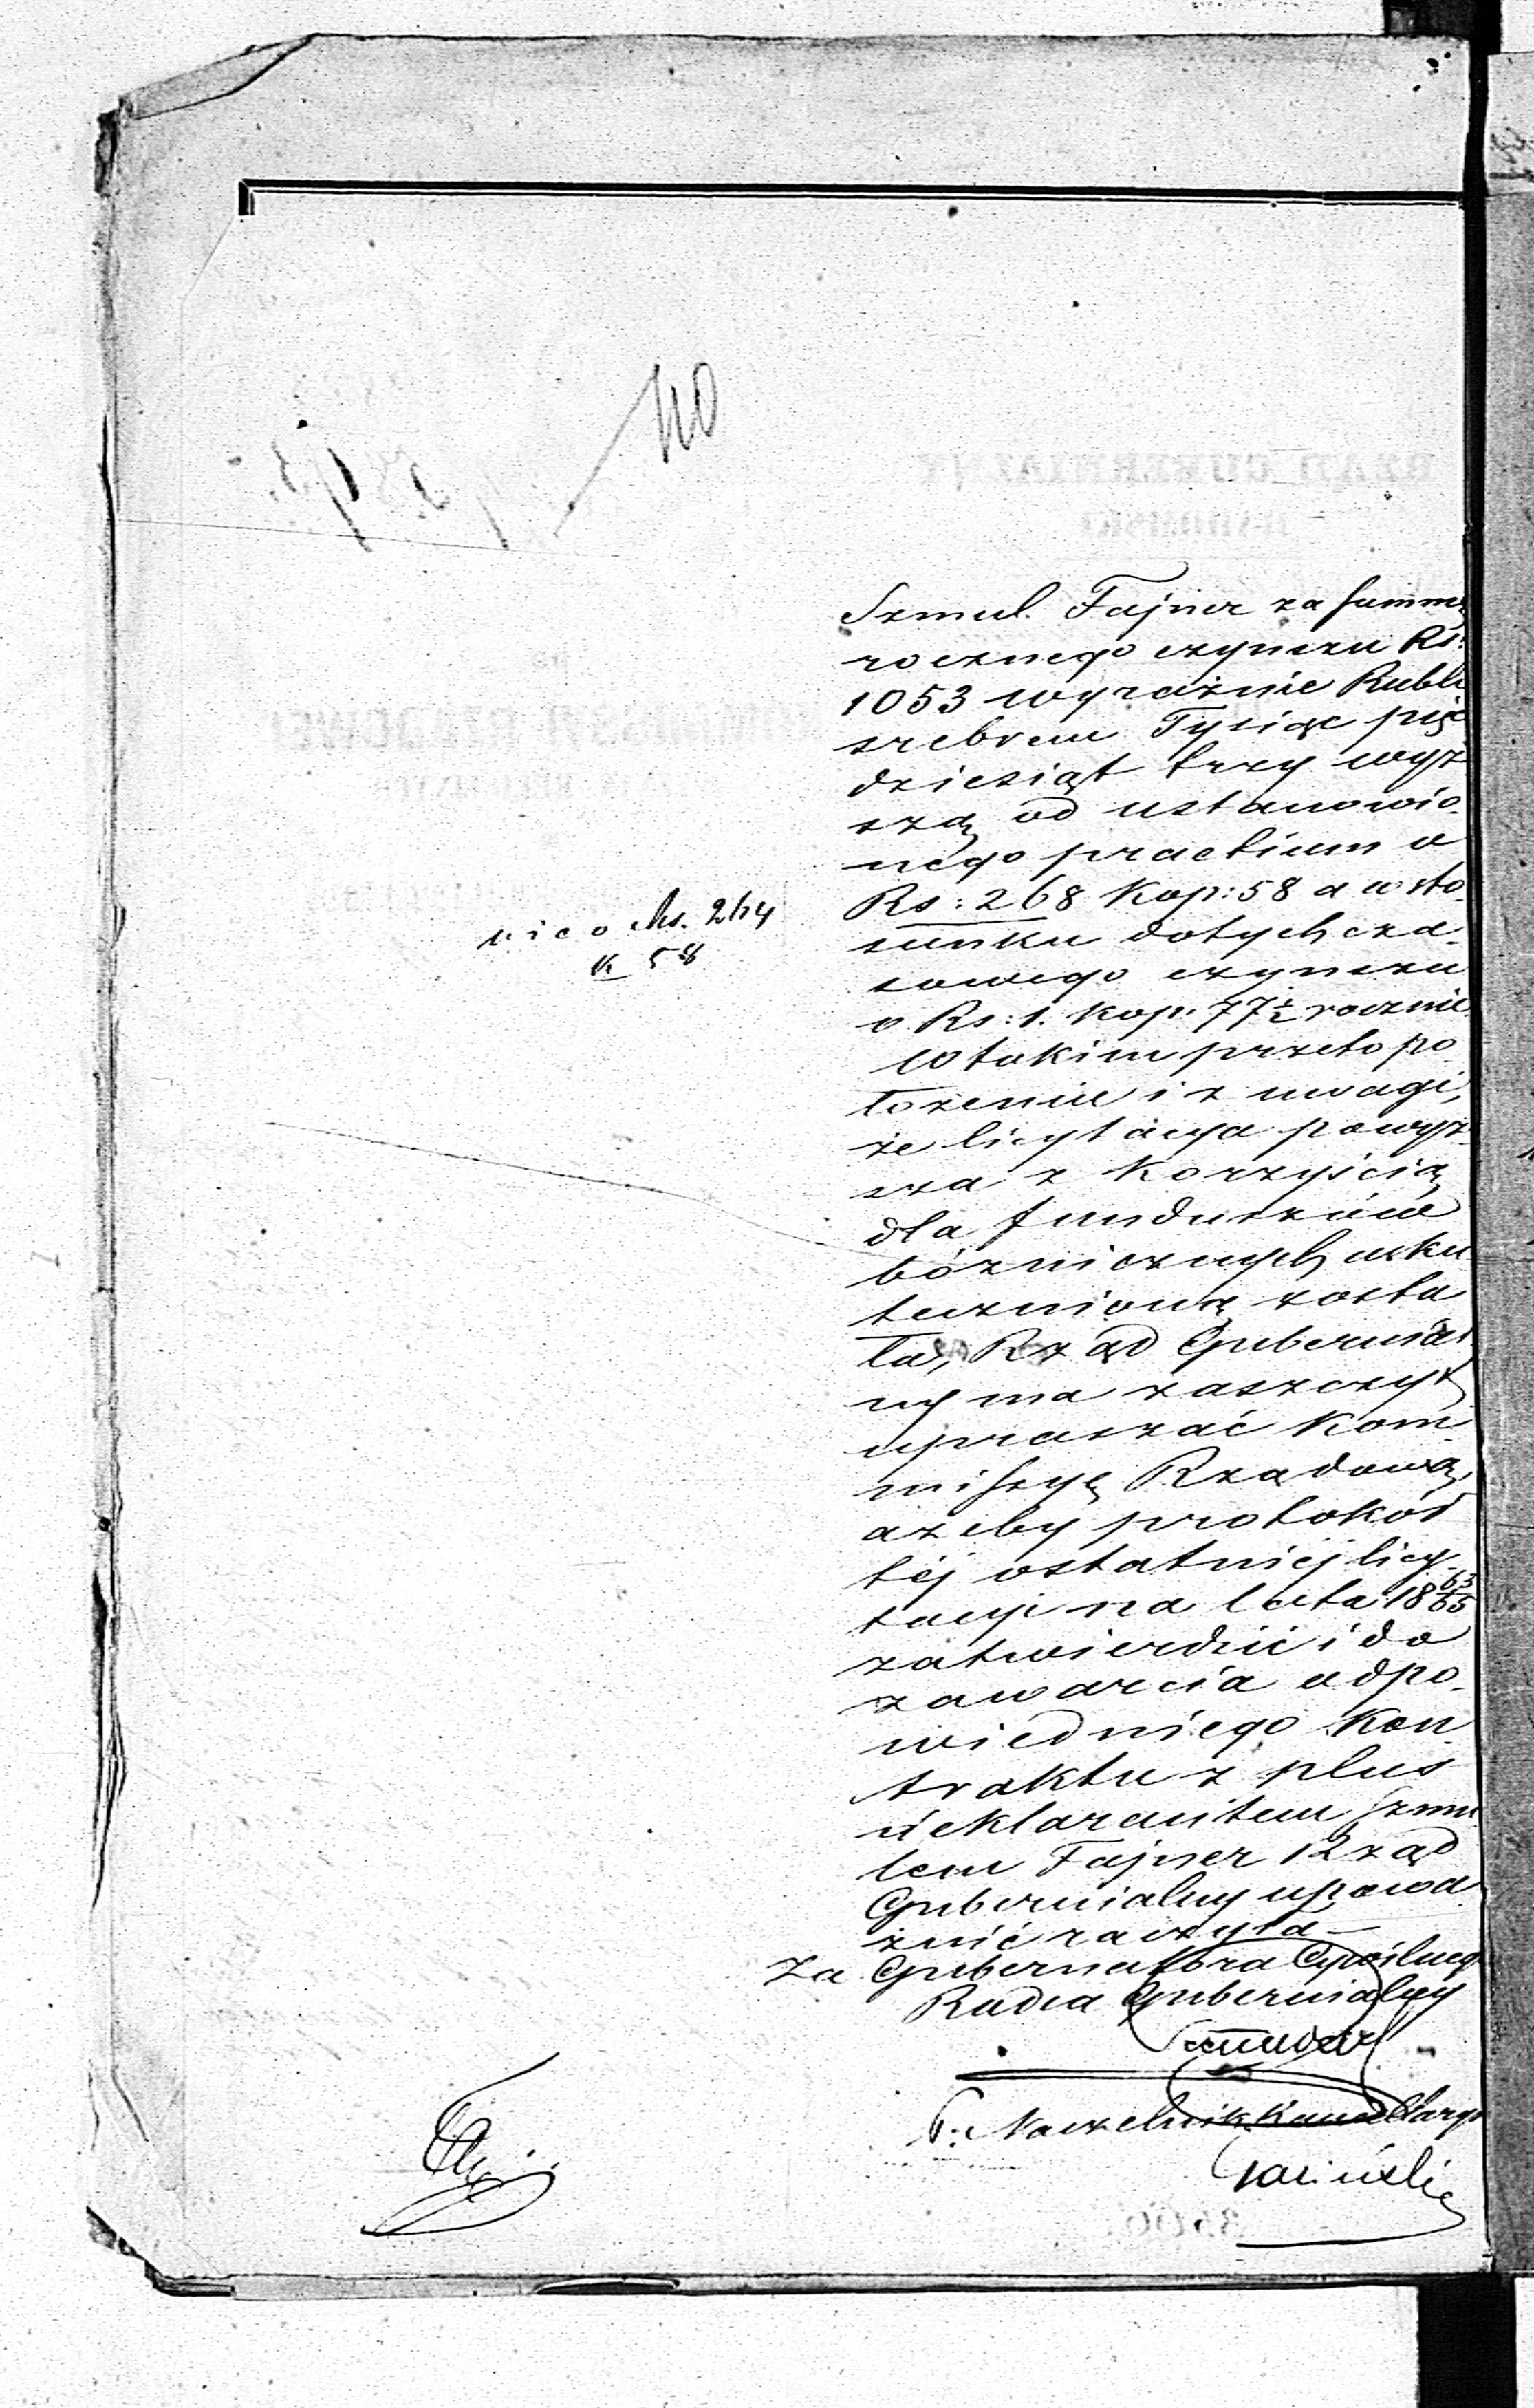 110
Szmul Fajner za summę
rocznego czynszu Rs:
1053 wyraźnie Rubli
srebrem Tysiąc pięć
dziesiąt trzy wyż
szą od ustanowio-
nego praetium o
Rs: 268 Kop: 58 a w sto-
sunku dotychcza-
sowego czynszu
o Rs: 1. Kop. 77½ rocznie
W takim przeto po
łożeniu i z uwagi,
że licytacya powyż-
sza z korzyścią
dla funduszów
bóżniczych usku
tecznioną zosta
ła, Rząd Gubernial
ny ma zaszczyt
upraszać Kom
missyę Rządową,
ażeby protokół
téj ostatniéj licy-
tacyi na lata 18 63/65
zatwierdzić i do
zawarcia odpo-
wiedniego Kon
traktu z plus
deklarantem Szmu
lem Fajner Rząd
Gubernialny upowa
żnić raczyła
Za Gubernatora Cywilnego
Radca Gubernialny
P: Naczelnik Kancellaryi
nico Rs. 264
K 58